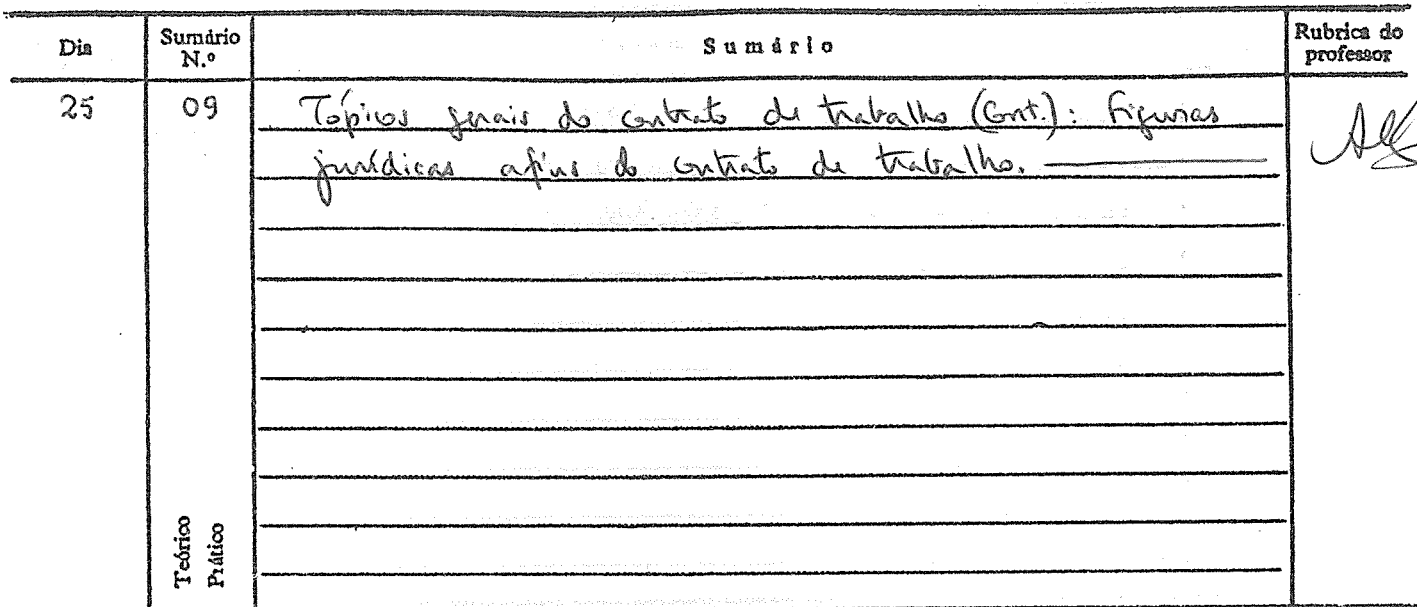 Dia Sumário N.º Sumário Rubrica do professor
25 09 Tópicos gerais do contrato de trabalho (Cont.): Figuras
jurídicas afins do contrato de trabalho.
Teórico
Prático